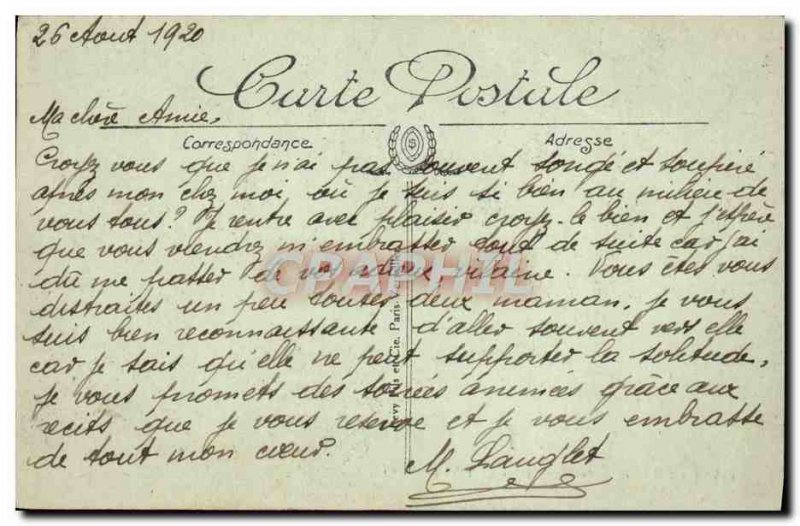 26 Aout 1920
Carte Postale
Ma chère Amie,
Correspondance
Adresse
Croyez vous que je n'ai pas souvent songé et soupiré
après mon chez moi où je suis si bien au milieu de
vous tous? Je rentre avec plaisir croyez-le bien et j'espère
que vous viendrez m'embrasser tout de suite car j'ai
dû me passer de vos adieux vilaine. Vous êtes vous
distraites un peu toutes deux maman, je vous
suis bien reconnaissante d'aller souvent vers elle
car je sais qu'elle ne peut supporter la solitude,
je vous promets des soirées animées grâce aux
recits que je vous reserve et je vous embrasse
de tout mon cœur.
M. Langlet
Levy Fils et Cie, Paris
CPAPHIL